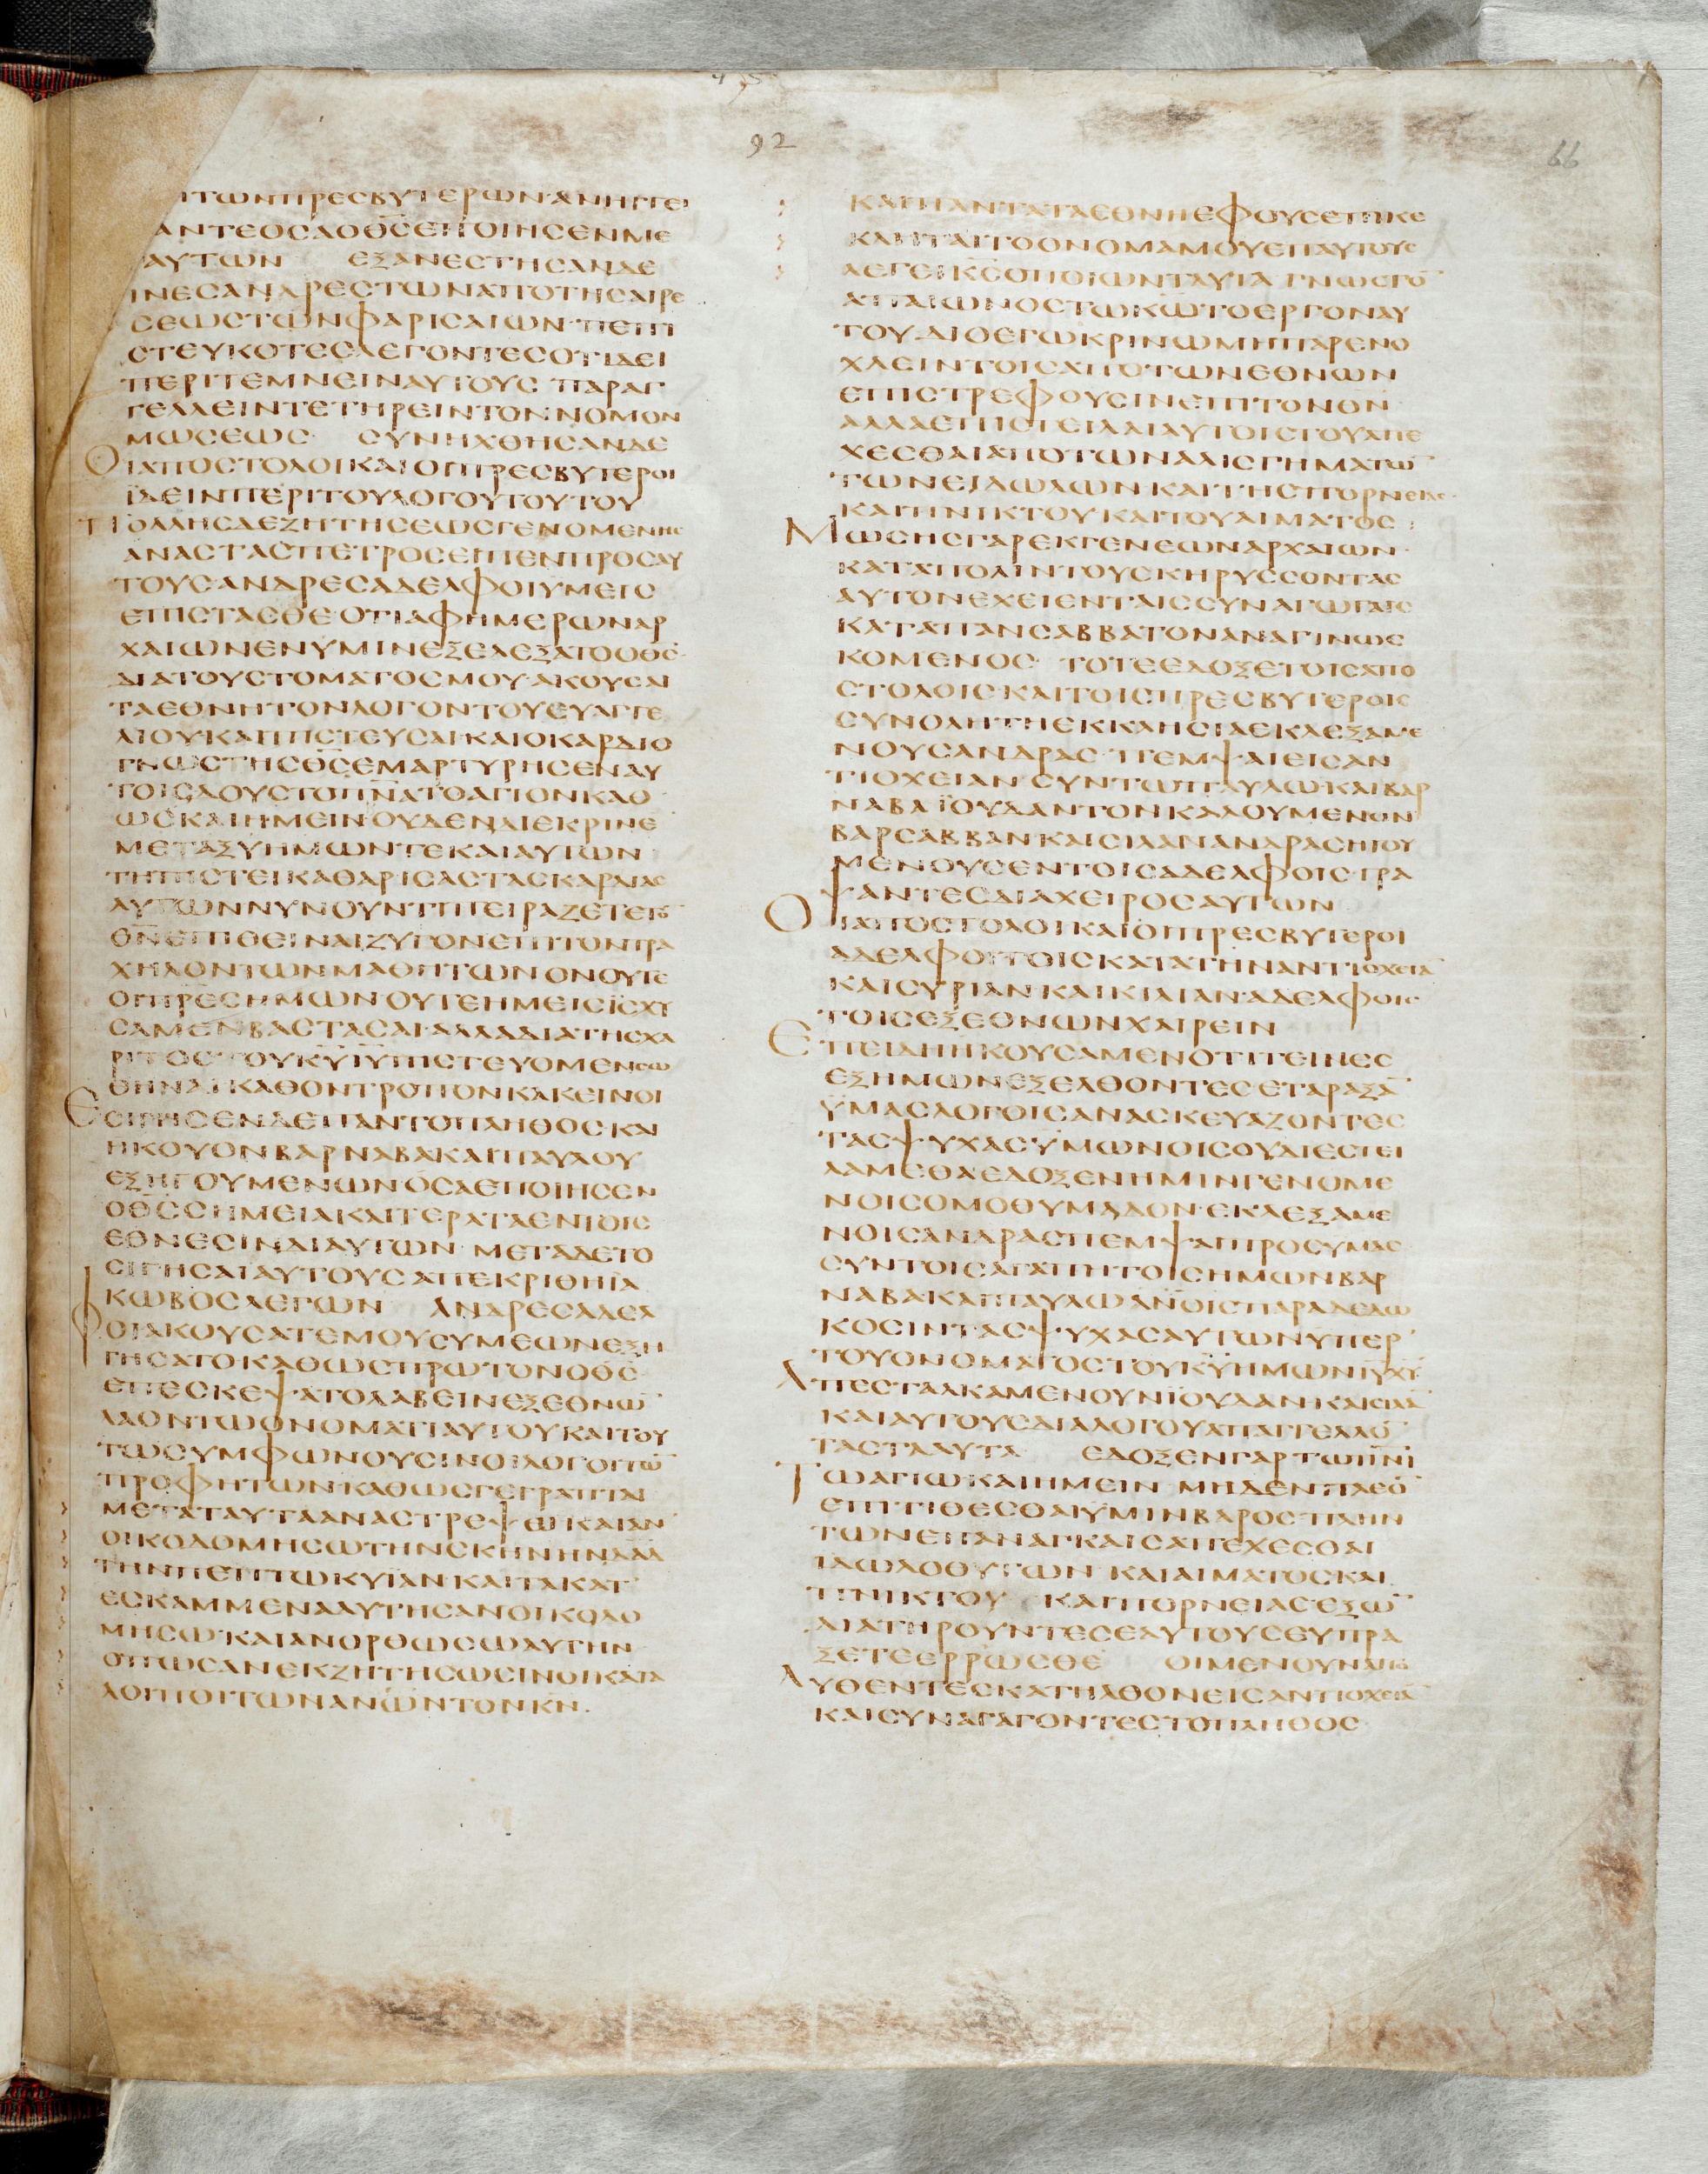 92
66
ΙΤΩΝΠΡΕCΒΥΤΕΡΩΝ·ΑΝΗΓΓΕΙ
ΑΝΤΕΟCΑΟΘ̅C̅ΕΠΟΙΗCΕΝΜΕ
ΑΥΤΩΝ ΕΞΑΝΕCΤΗCΑΝΔΕ
ΙΝΕCΑΝΔΡΕCΤΩΝΑΠΟΤΗCΑΙΡΕ
CΕΩCΤΩΝΦΑΡΙCΑΙΩΝ·ΠΕΠΙ
CΤΕΥΚΟΤΕCΛΕΓΟΝΤΕCΟΤΙΔΕΙ
ΠΕΡΙΤΕΜΝΕΙΝΑΥΤΟΥC ΠΑΡΑΓ
ΓΕΛΛΕΙΝΤΕΤΗΡΕΙΝΤΟΝΝΟΜΟΝ
ΜΩCΕΩC CΥΝΗΧΘΗCΑΝΔΕ
ΟΙΑΠΟCΤΟΛΟΙΚΑΙΟΙΠΡΕCΒΥΤΕΡΟΙ
ΪΔΕΙΝΠΕΡΙΤΟΥΛΟΓΟΥΤΟΥΤΟΥ
ΠΟΛΛΗCΔΕΖΗΤΗCΕΩCΓΕΝΟΜΕΝΗC
ΑΝΑCΤΑCΠΕΤΡΟCΕΙΠΕΝΠΡΟCΑΥ
ΤΟΥC·ΑΝΔΡΕCΑΔΕΛΦΟΙΫΜΕΙC
ΕΠΙCΤΑCΘΕ·ΟΤΙΑΦΗΜΕΡΩΝΑΡ
ΧΑΙΩΝΕΝΥΜΙΝΕΞΕΛΕΞΑΤΟΟΘ̅C̅·
ΔΙΑΤΟΥCΤΟΜΑΤΟCΜΟΥ·ΑΚΟΥCΑΙ
ΤΑΕΘΝΗΤΟΝΛΟΓΟΝΤΟΥΕΥΑΓΓΕ
ΛΙΟΥΚΑΙΠΙCΤΕΥCΑΙ·ΚΑΙΟΚΑΡΔΙΟ
ΓΝΩCΤΗCΘ̅C̅ΕΜΑΡΤΥΡΗCΕΝΑΥ
ΤΟΙCΔΟΥCΤΟΠ̅Ν̅Α̅ΤΟΑΓΙΟΝΚΑΘ
ΩCΚΑΙΗΜΕΙΝ·ΟΥΔΕΝΔΙΕΚΡΙΝΕ
ΜΕΤΑΞΥΗΜΩΝΤΕΚΑΙΑΥΤΩΝ
ΤΗΠΙCΤΕΙΚΑΘΑΡΙCΑCΤΑCΚΑΡΔΙΑC
ΑΥΤΩΝΝΥΝΟΥΝΤΙΠΕΙΡΑΖΕΤΕΤΟ̅
Θ̅Ν̅ΕΠΙΘΕΙΝΑΙΖΥΓΟΝΕΠΙΤΟΝΤΡΑ
ΧΗΛΟΝΤΩΝΜΑΘΗΤΩΝΟΝΟΥΤΕ
ΟΙΠΡ̅Ε̅C̅ΗΜΩΝ·ΟΥΤΕΗΜΕΙCΪCΧΥ
CΑΜΕΝΒΑCΤΑCΑΙ·ΑΛΛΑΔΙΑΤΗCΧΑ
ΡΙΤΟCΤΟΥΚ̅Υ̅Ι̅Υ̅ΠΙCΤΕΥΟΜΕΝCΩ
ΘΗΝΑΙΚΑΘΟΝΤΡΟΠΟΝΚΑΚΕΙΝΟΙ
ΕCΙΓΗCΕΝΔΕΠΑΝΤΟΠΛΗΘΟCΚΑΙ
ΗΚΟΥΟΝΒΑΡΝΑΒΑΚΑΙΠΑΥΛΟΥ
ΕΞΗΓΟΥΜΕΝΩΝΟCΑΕΠΟΙΗCΕΝ
ΟΘ̅C̅CΗΜΕΙΑΚΑΙΤΕΡΑΤΑΕΝΤΟΙC
ΕΘΝΕCΙΝΔΙΑΥΤΩΝ·ΜΕΤΑΔΕΤΟ
CΙΓΗCΑΙΑΥΤΟΥCΑΠΕΚΡΙΘΗΪΑ
ΚΩΒΟCΛΕΓΩΝ ΑΝΔΡΕCΑΔΕΛ
ΦΟΙΑΚΟΥCΑΤΕΜΟΥCΥΜΕΩΝΕΞΗ
ΓΗCΑΤΟΚΑΘΩCΠΡΩΤΟΝΟΘ̅C̅
ΕΠΕCΚΕΨΑΤΟΛΑΒΕΙΝΕΞΕΘΝΩ̅
ΛΑΟΝΤΩΟΝΟΜΑΤΙΑΥΤΟΥΚΑΙΤΟΥ
ΤΩCΥΜΦΩΝΟΥCΙΝΟΙΛΟΓΟΙΤΩ̅
ΠΡΟΦΗΤΩΝ·ΚΑΘΩCΓΕΓΡΑΠΤΑΙ
ΜΕΤΑΤΑΥΤΑΑΝΑCΤΡΕΨΩΚΑΙΑΝ
ΟΙΚΟΔΟΜΗCΩΤΗΝCΚΗΝΗΝΔΑΔ
ΤΗΝΠΕΠΤΩΚΥΪΑΝ·ΚΑΙΤΑΚΑΤ
ΕCΚΑΜΜΕΝΑΑΥΤΗCΑΝΟΙΚΟΔΟ
ΜΗCΩ·ΚΑΙΑΝΟΡΘΩCΩΑΥΤΗΝ
ΟΠΩCΑΝΕΚΖΗΤΗCΩCΙΝΟΙΚΑΤΑ
ΛΟΙΠΟΙΤΩΝΑΝ̅Ω̅Ν̅ΤΟΝΚ̅Ν̅.
ΚΑΙΠΑΝΤΑΤΑΕΘΝΗΕΦΟΥCΕΠΙΚΕ
ΚΛΗΤΑΙΤΟΟΝΟΜΑΜΟΥΕΠΑΥΤΟΥC
ΛΕΓΕΙΚ̅C̅ΟΠΟΙΩΝΤΑΥΤΑ ΓΝΩCΤΟ̅
ΑΠΑΙΩΝΟCΤΩΚ̅Ω̅ΤΟΕΡΓΟΝΑΥ
ΤΟΥ·ΔΙΟΕΓΩΚΡΙΝΩΜΗΠΑΡΕΝΟ
ΧΛΕΙΝΤΟΙCΑΠΟΤΩΝΕΘΝΩΝ
ΕΠΙCΤΡΕΦΟΥCΙΝΕΠΙΤΟΝΘΝ
ΑΛΛΑΕΠΙCΤΕΙΛΑΙΑΥΤΟΙCΤΟΥΑΠΕ
ΧΕCΘΑΙΑΠΟΤΩΝΑΛΙCΓΗΜΑΤΩ̅
ΤΩΝΕΙΔΩΛΩΝ·ΚΑΙΤΗCΠΟΡΝΕΙΑC·
ΚΑΙΠΝΙΚΤΟΥ·ΚΑΙΤΟΥΑΙΜΑΤΟC
ΜΩCΗCΓΑΡΕΚΓΕΝΕΩΝΑΡΧΑΙΩΝ·
ΚΑΤΑΠΟΛΙΝΤΟΥCΚΗΡΥCCΟΝΤΑC
ΑΥΤΟΝΕΧΕΙΕΝΤΑΙCCΥΝΑΓΩΓΑΙC
ΚΑΤΑΠΑΝCΑΒΒΑΤΟΝΑΝΑΓΙΝΩC
ΚΟΜΕΝΟC· ΤΟΤΕΕΔΟΞΕΤΟΙCΑΠΟ
CΤΟΛΟΙC·ΚΑΙΤΟΙCΠΡΕCΒΥΤΕΡΟΙC
CΥΝΟΛΗΤΗΕΚΚΛΗCΙΑΕΚΛΕΞΑΜΕ
ΝΟΥCΑΝΔΡΑC·ΠΕΜΨΑΙΕΙCΑΝ
ΤΙΟΧΕΙΑΝ·CΥΝΤΩΠΑΥΛΩ·ΚΑΙΒΑΡ
ΝΑΒΑΪΟΥΔΑΝΤΟΝΚΑΛΟΥΜΕΝΟΝ
ΒΑΡCΑΒΒΑΝ·ΚΑΙCΙΛΑΝΑΝΔΡΑCΗΓΟΥ
ΜΕΝΟΥCΕΝΤΟΙCΑΔΕΛΦΟΙC·ΓΡΑ
ΨΑΝΤΕCΔΙΑΧΕΙΡΟCΑΥΤΩΝ
ΟΙΑΠΟCΤΟΛΟΙΚΑΙΟΙΠΡΕCΒΥΤΕΡΟΙ
ΑΔΕΛΦΟΙ·ΤΟΙCΚΑΤΑΤΗΝΑΝΤΙΟΧΕΙΑ̅
ΚΑΙCΥΡΙΑΝ·ΚΑΙΚΙΛΙΑΝ·ΑΔΕΛΦΟΙC·
ΤΟΙCΕΞΕΘΝΩΝΧΑΙΡΕΙΝ
ΕΠΕΙΔΗΗΚΟΥCΑΜΕΝΟΤΙΤΕΙΝΕC
ΕΞΗΜΩΝΕΞΕΛΘΟΝΤΕCΕΤΑΡΑΞΑ̅
ΫΜΑCΛΟΓΟΙCΑΝΑCΚΕΥΑΖΟΝΤΕC
ΤΑCΨΥΧΑCΫΜΩΝΟΙCΟΥΔΙΕCΤΕΙ
ΛΑΜΕΘΑΕΔΟΞΕΝΗΜΙΝΓΕΝΟΜΕ
ΝΟΙCΟΜΟΘΥΜΑΔΟΝ·ΕΚΛΕΞΑΜΕ
ΝΟΙCΑΝΔΡΑCΠΕΜΨΑΙΠΡΟCΥΜΑC
CΥΝΤΟΙCΑΓΑΠΗΤΟΙCΗΜΩΝΒΑΡ
ΝΑΒΑΚΑΙΠΑΥΛΩΑΝ̅ΟΙCΠΑΡΑΔΕΔΩ
ΚΟCΙΝΤΑCΨΥΧΑCΑΥΤΩΝΥΠΕΡ
ΤΟΥΟΝΟΜΑΤΟCΤΟΥΚ̅Υ̅ΗΜΩΝΙ̅Υ̅Χ̅Υ̅
ΑΠΕCΤΑΛΚΑΜΕΝΟΥΝΪΟΥΔΑΝΚΑΙCΙΛΑ̅
ΚΑΙΑΥΤΟΥCΔΙΑΛΟΓΟΥΑΠΑΓΓΕΛΛΟ̅
ΤΑCΤΑΑΥΤΑ ΕΔΟΞΕΝΓΑΡΤΩΠ̅Ν̅Ι̅
ΤΩΑΓΙΩ·ΚΑΙΗΜΕΙΝ ΜΗΔΕΝΠΛΕΟ̅
ΕΠΙΤΙΘΕCΘΑΙΥΜΙΝΒΑΡΟCΠΛΗΝ
ΤΩΝΕΠΑΝΑΓΚΑΙCΑΠΕΧΕCΘΑΙ
ΙΔΩΛΟΘΥΤΩΝ ΚΑΙΑΙΜΑΤΟCΚΑΙ
ΠΝΙΚΤΟΥ ΚΑΙΠΟΡΝΕΙΑCΕΞΩ̅
ΔΙΑΤΗΡΟΥΝΤΕCΕΑΥΤΟΥCΕΥΠΡΑ
ΞΕΤΕΕΡΡΩCΘΕ ΟΙΜΕΝΟΥΝΑΠΟ
ΛΥΘΕΝΤΕCΚΑΤΗΛΘΟΝΕΙCΑΝΤΙΟΧΕΙΑ̅
ΚΑΙCΥΝΑΓΑΓΟΝΤΕCΤΟΠΛΗΘΟC